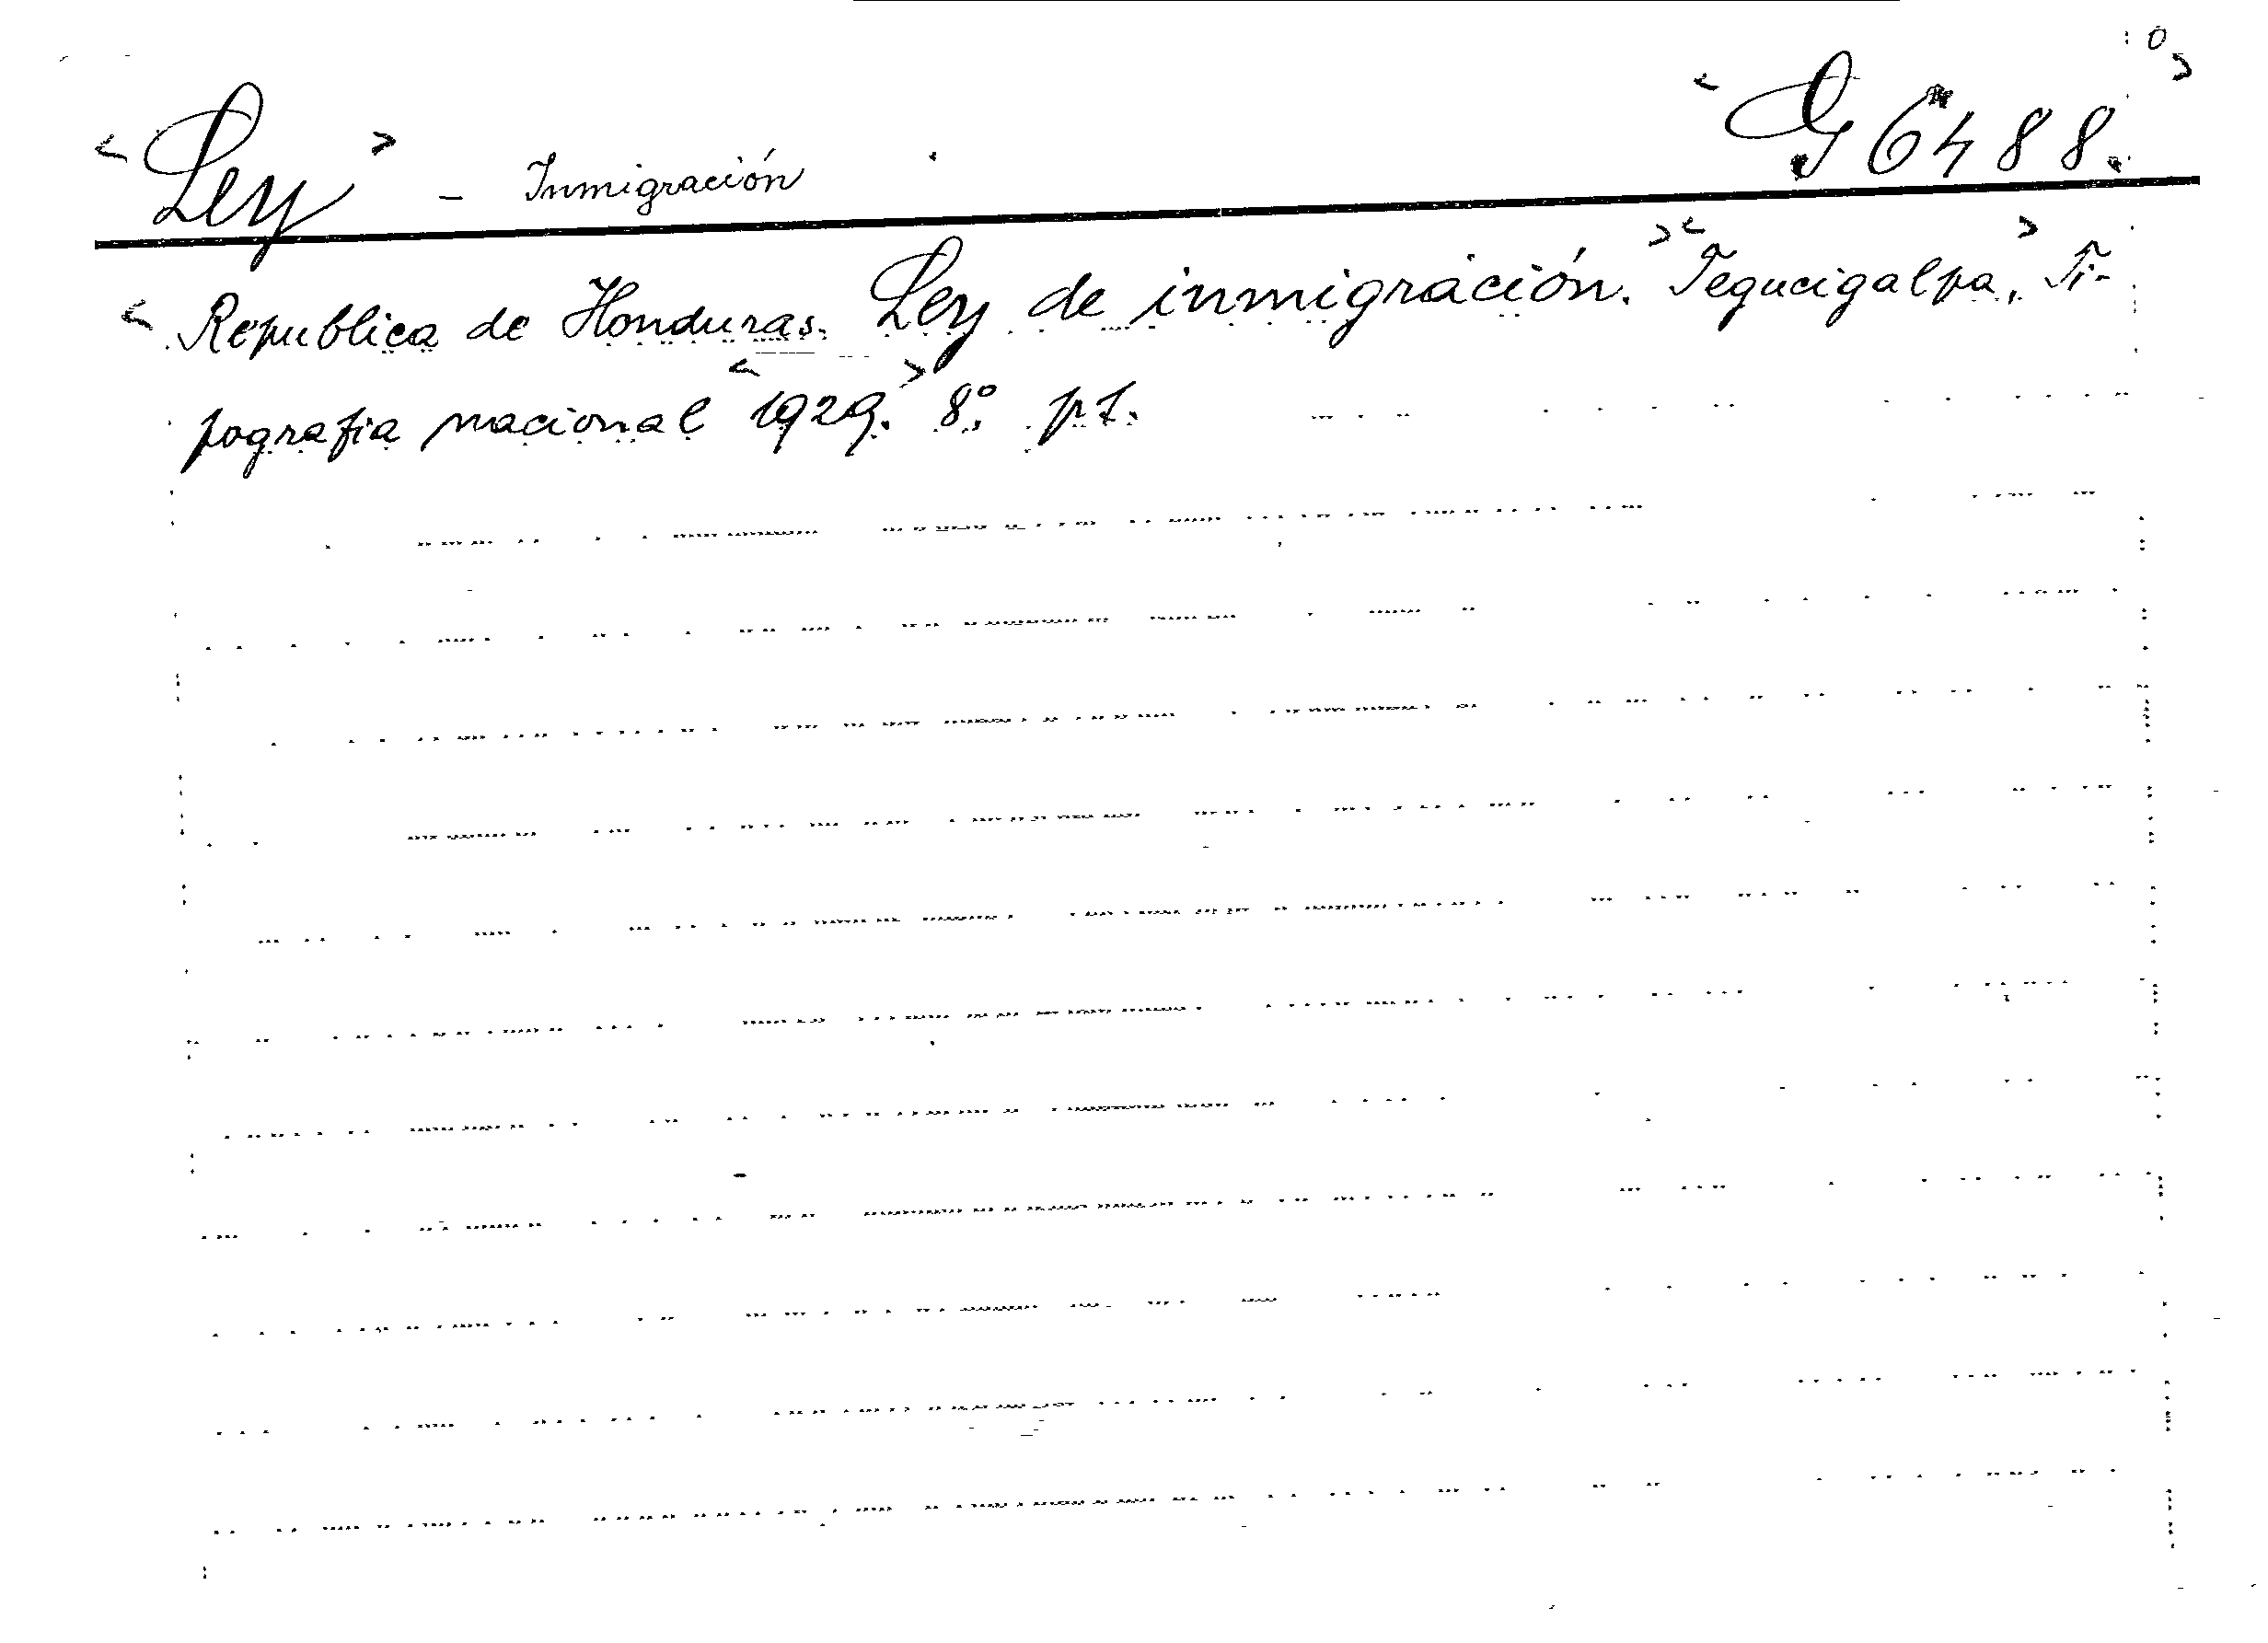 < Ley > – Inmigración < G 6488. >
< Republica de Honduras. Ley de inmigración. > < Tegucigalpa, > Ti-
pografia nacional < 1929. > 8º. pt.